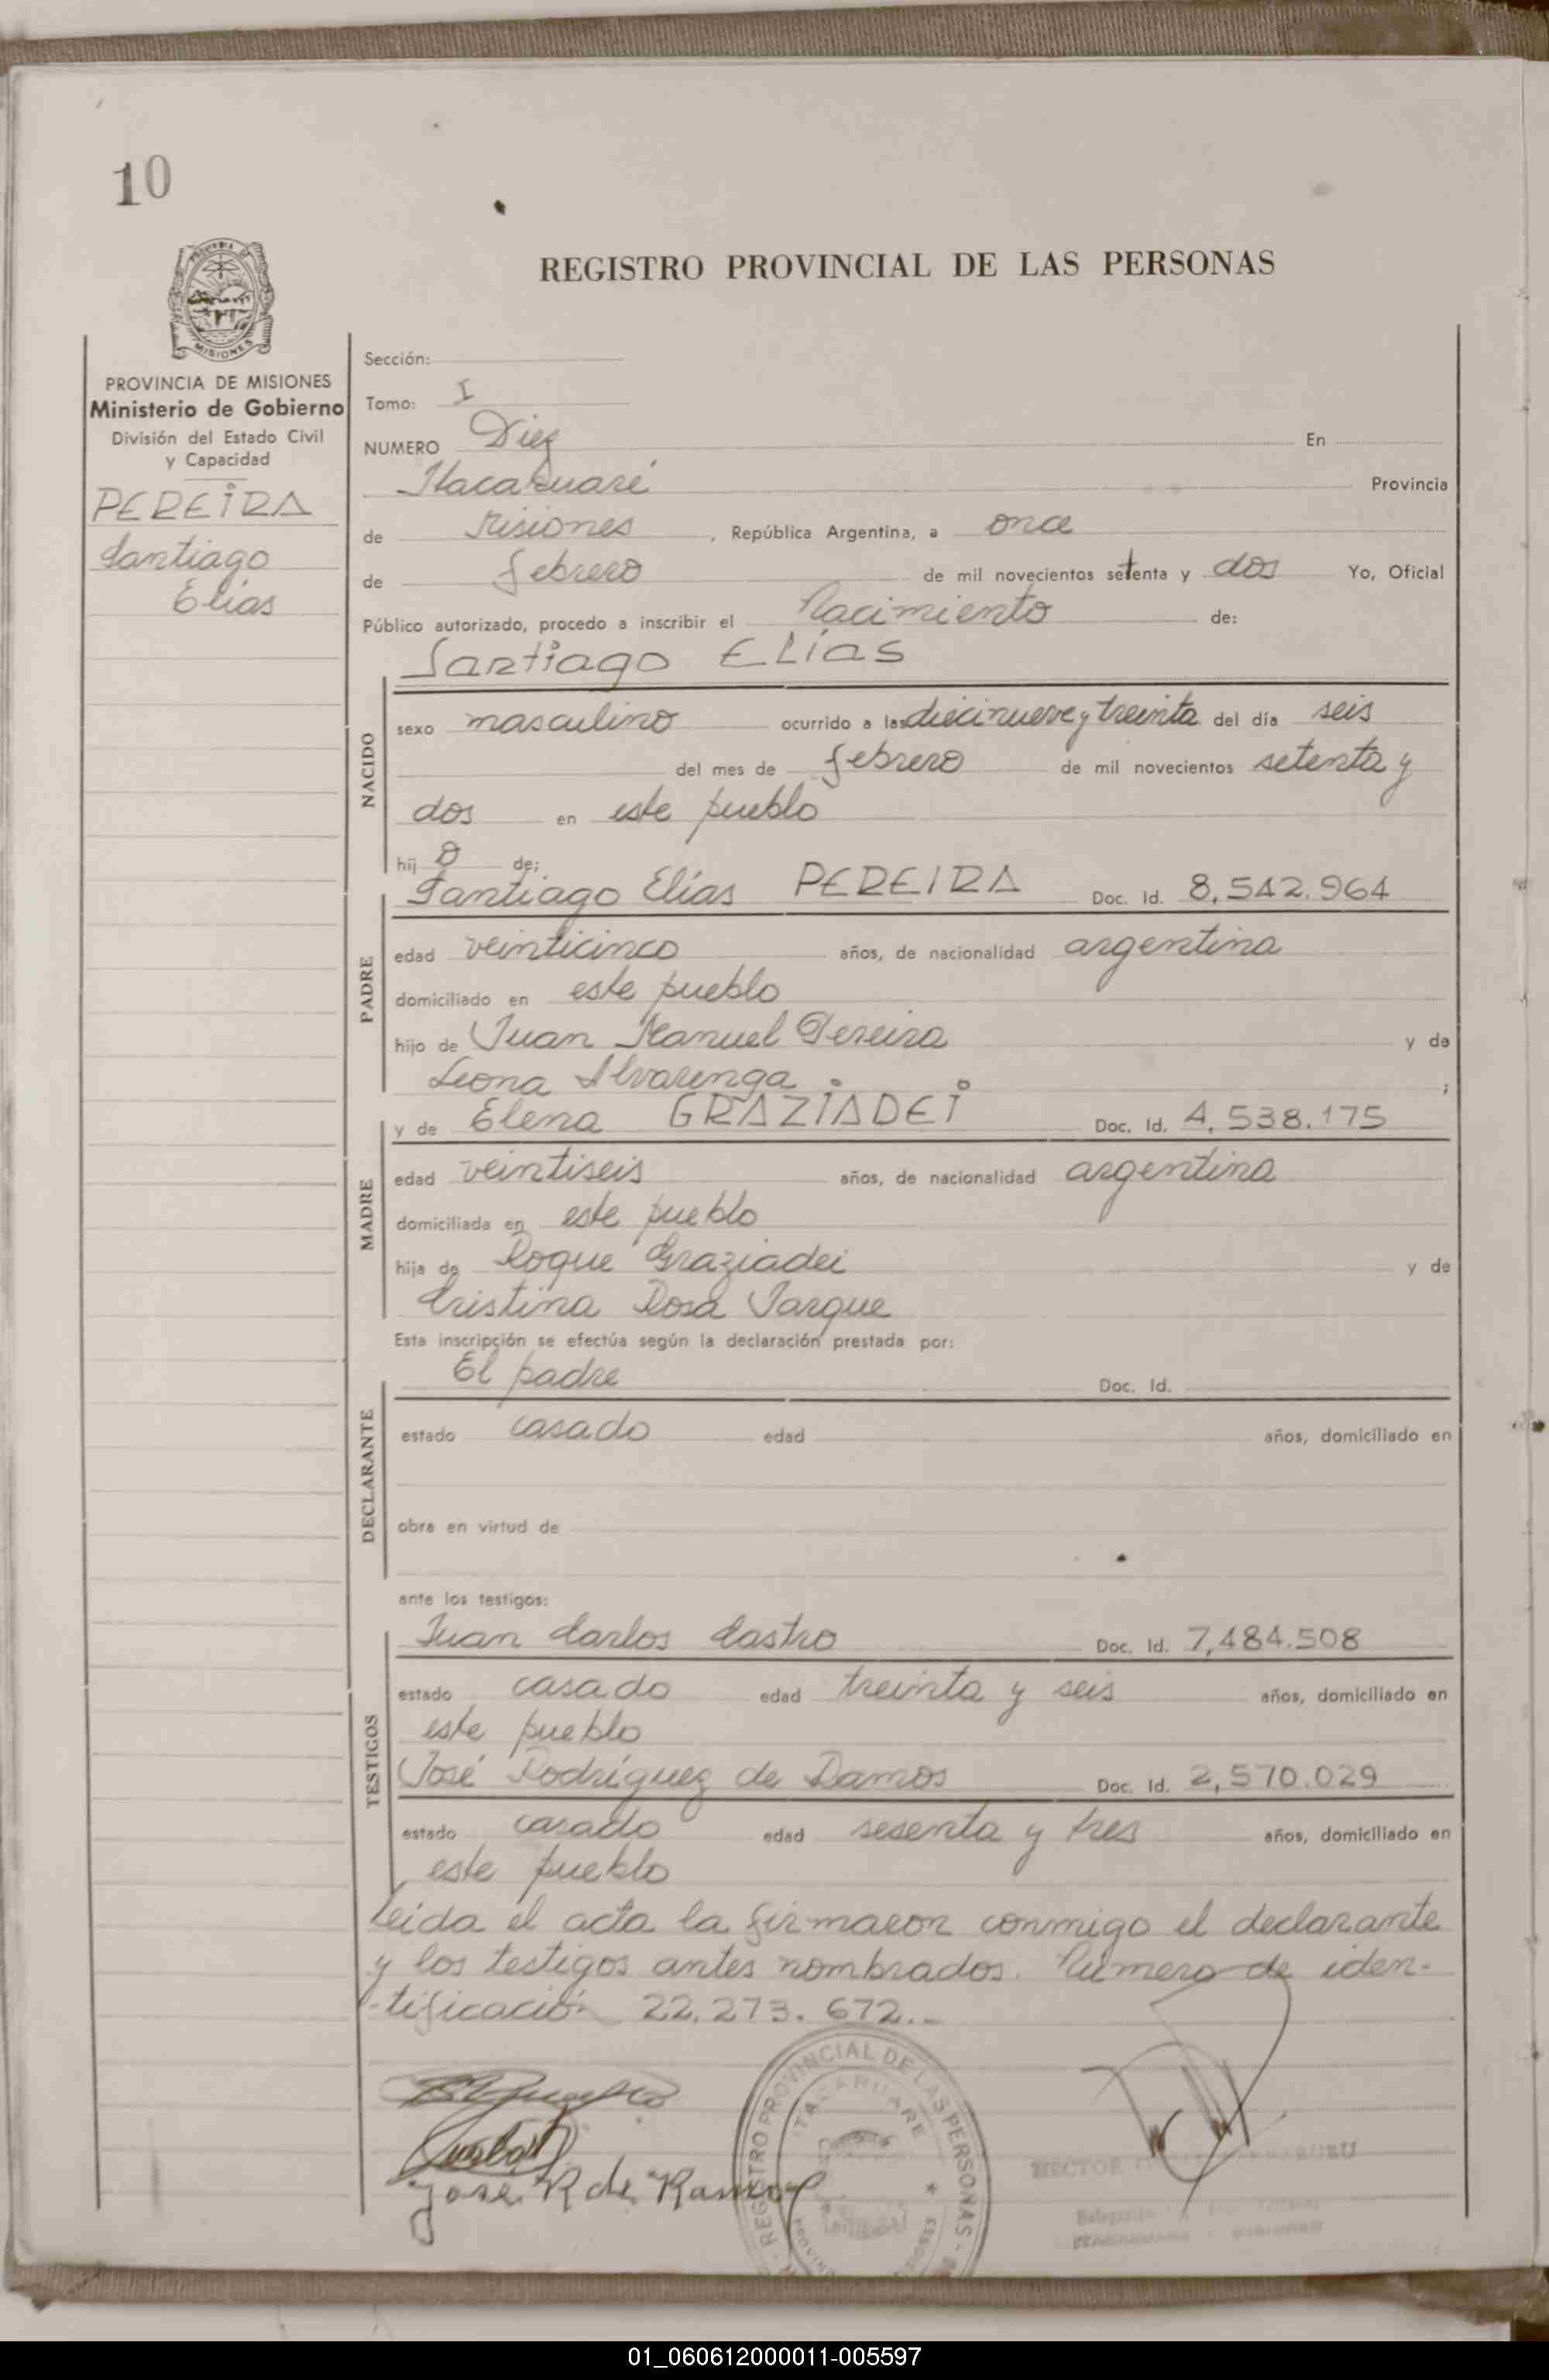 10
REGISTRO PROVINCIAL DE LAS PERSONAS
PROVINCIA DE MISIONES
Ministerio de Gobierno
División del Estado Civil
y Capacidad
PEREIRA
Santiago
Elías
Sección:
Tomo: I
NUMERO Diez En
Itacaruaré Provincia
de Misiones, República Argentina, a once
de febrero de mil novecientos setenta y dos Yo, Oficial
Público autorizado, procedo a inscribir el Nacimiento de:
Santiago ELías
NACIDO
sexo masculino ocurrido a las diecinueve y treinta del día seis
del mes de febrero de mil novecientos setenta y
dos en este pueblo
hij o de:
PADRE
Santiago Elías PEREIRA Doc. Id. 8,542.964
edad veinticinco años, de nacionalidad argentina
domiciliado en este pueblo
hijo de Juan Manuel Pereira y de
Leona Alvarenga ;
MADRE
y de Elena GRAZIADEI Doc. Id. 4,538.175
edad veintiseis años, de nacionalidad argentina
domiciliada en este pueblo
hija de Roque Graziadei y de
Cristina Rosa Jarque
Esta inscripción se efectúa según la declaración prestada por:
DECLARANTE
El padre Doc. Id.
estado casado edad años, domiciliado en
obra en virtud de
ante los testigos:
TESTIGOS
Juan Carlos Castro Doc. Id. 7,484.508
estado casado edad treinta y seis años, domiciliado en
este pueblo
José Rodríguez de Ramos Doc. Id. 2,570.029
estado casado edad sesenta y tres años, domiciliado en
este pueblo
Leida el acta la firmaron conmigo el declarante
y los testigos antes nombrados. Número de iden-
-tificación 22.273.672.-
José R de Ramos
REGISTRO PROVINCIAL DE LAS PERSONAS
ITACARUARE
HECTOR
01_060612000011-005597